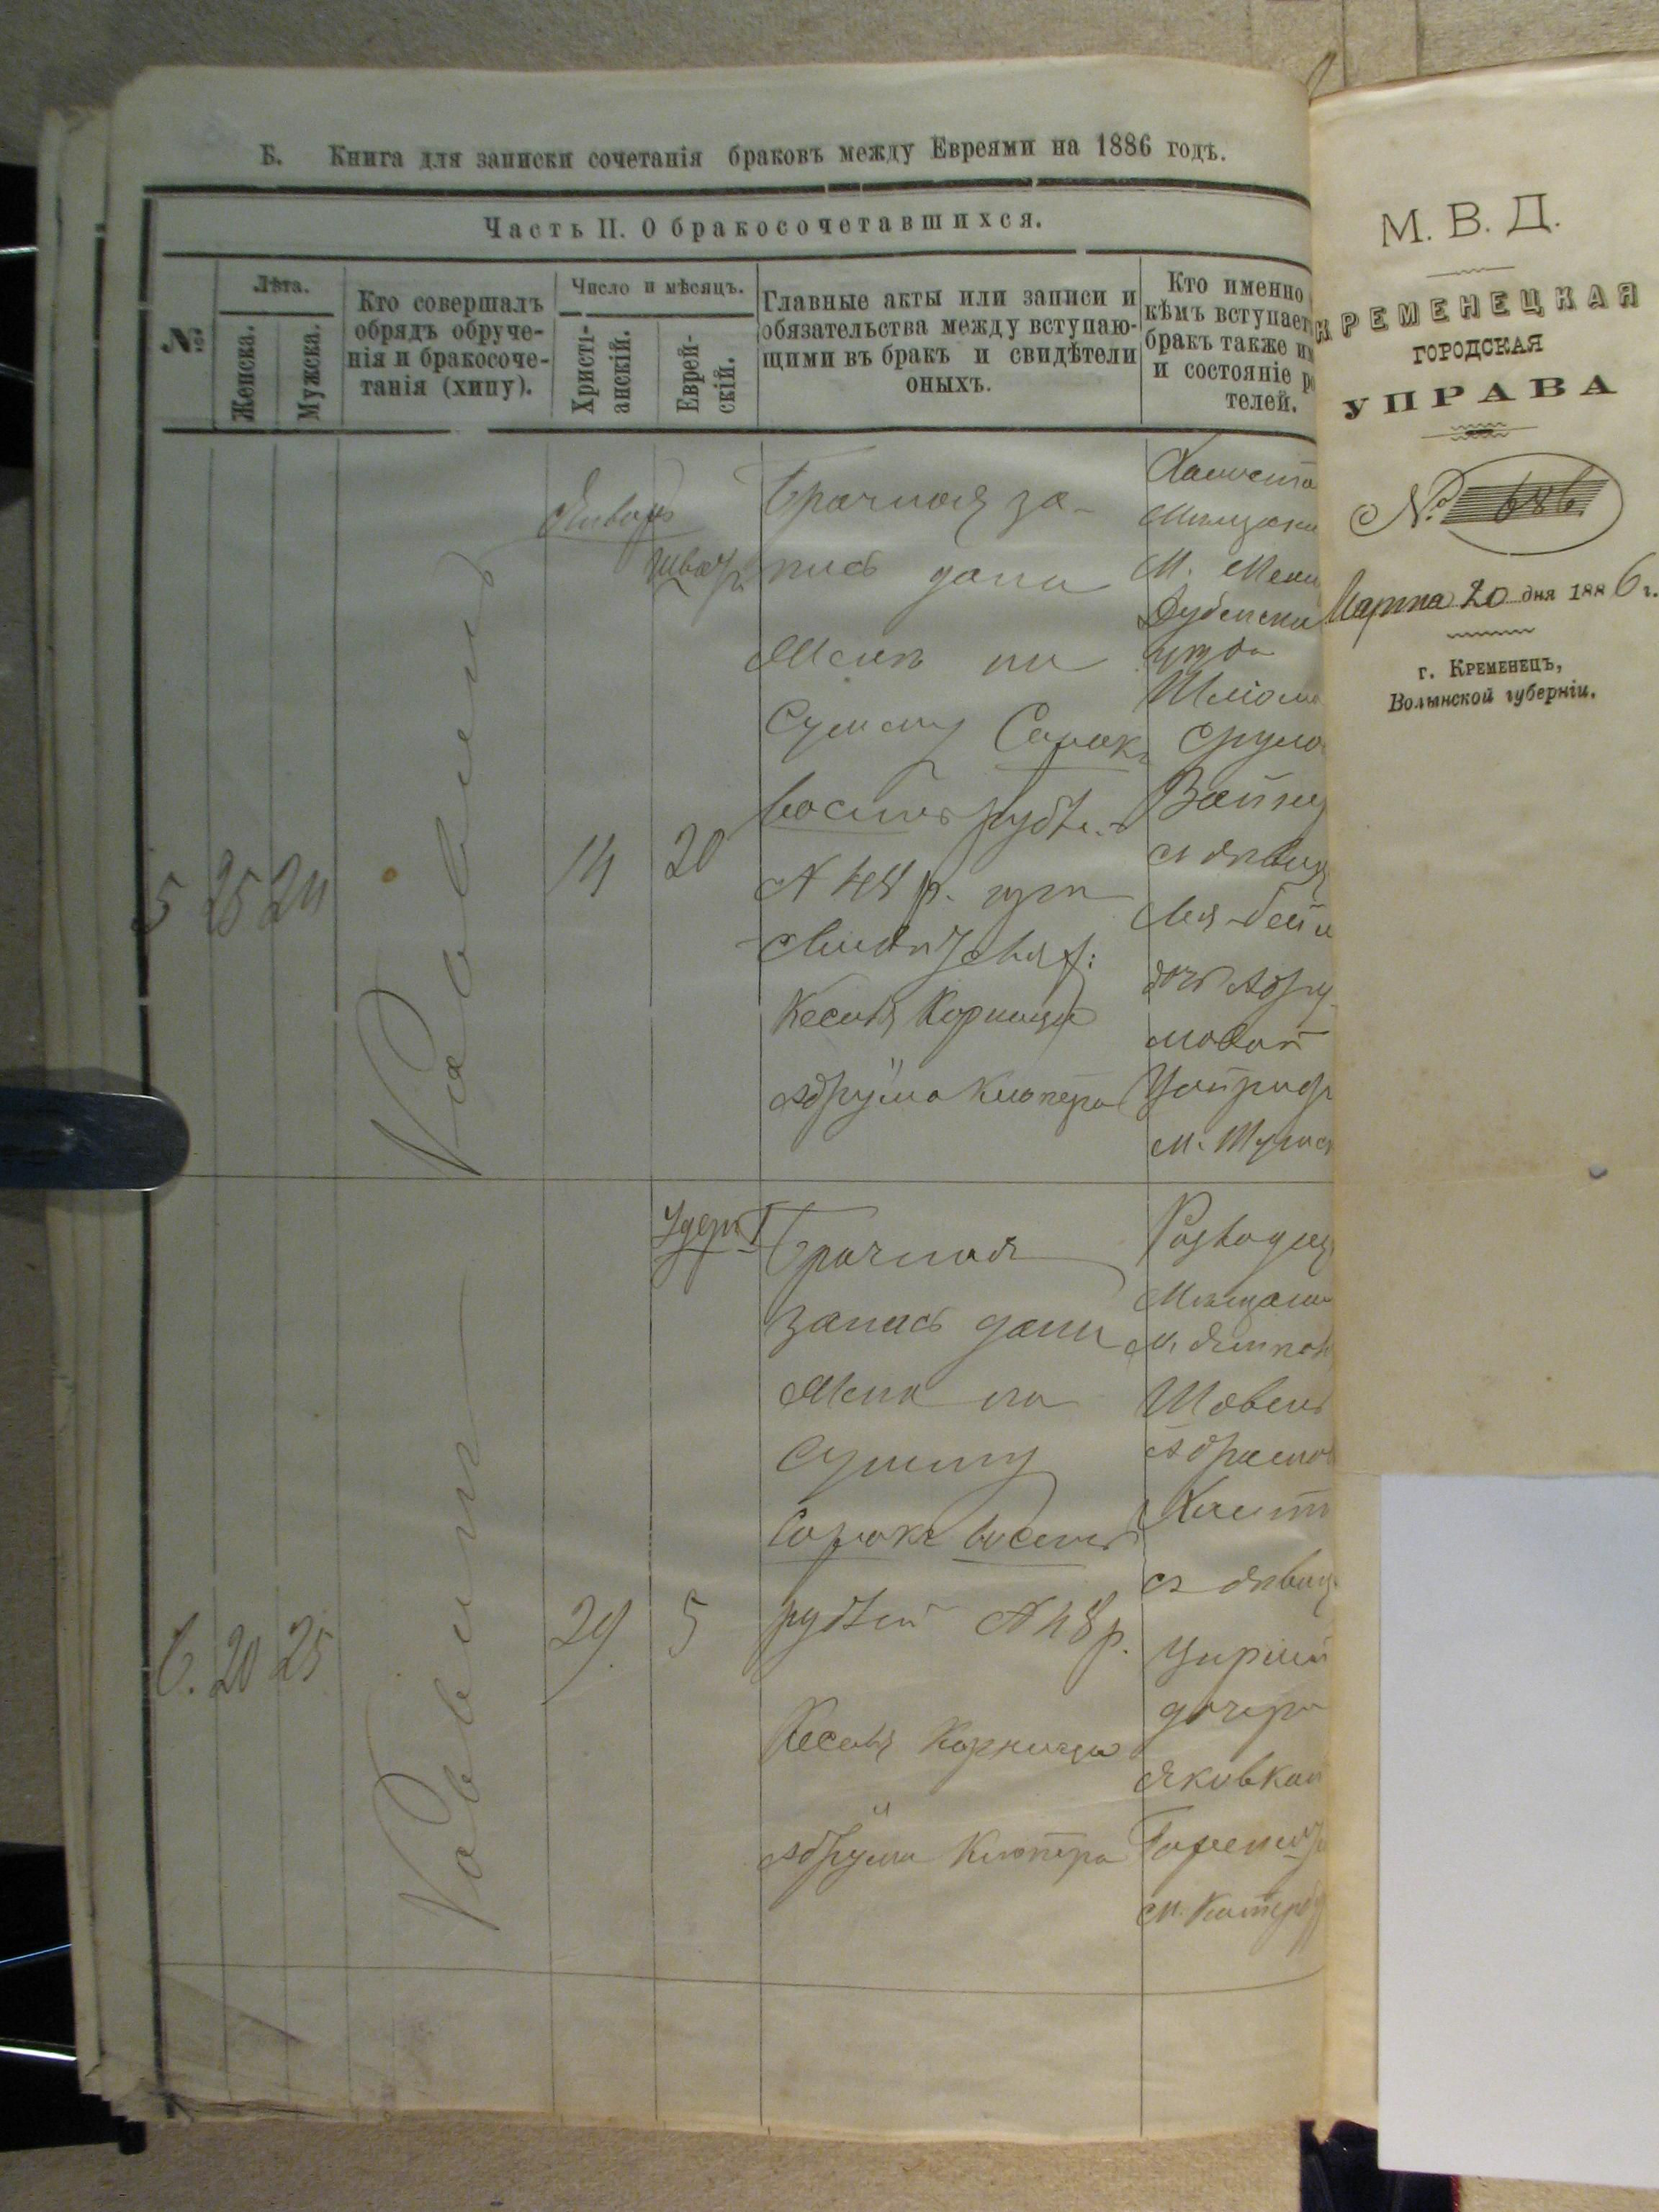 Б. Книга для записки сочетанія браковъ между Евреями на 1886 годъ.
Часть II. О бракосочетавшихся.
№
Лѣта.
Женска.
Мужска.
Кто совершалъ
обрядъ обруче-
нія и бракосоче-
танія (хипу).
Число и мѣсяцъ.
Христі-
анскій.
Еврей-
скій.
Главные акты или записи и
обязательства между вступаю-
щими въ бракъ и свидѣтели
оныхъ.
Кто именно
кѣмъ вступает
бракъ также им
и состояніе ро
телей.
5
25
24
Раввинъ
Январь
14
Шват
20
Брачная за-
пись дана
Женѣ на
Сумму Сорокъ
восемь рубл.
№ 48 р. при
Кесель Корницъ
Абрума Клопера
Холоста
Мѣщани
М.
Дубенска
уѣзда
Шліома
Срулов
Вайне
съ дѣвиц
Лея-бейл
дочь Абру-
мовой
М.
6.
20
25
Раввинъ
29
Удеръ I
5
Брачная
запись дана
Женѣ на
Сумму
Сорокъ восемь
рублей № 48 р.
Кесель Корница
Абрума Клопера
Разводец
Мѣщани
м. Ямпол
Абрамов
съ дѣвиц
дочери
Яковкой
м. Катерб
М. В. Д.
КРЕМЕНЕЦКАЯ
ГОРОДСКАЯ
УПРАВА
№ 686
Марта 20 дня 1886 г.
г. Кременецъ,
Волынской губерніи.